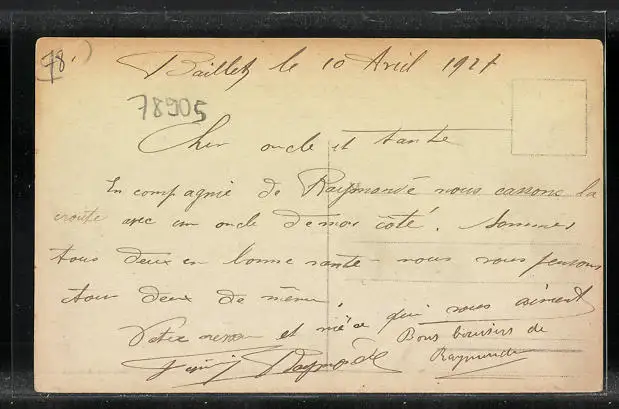 78.
Baillet le 10 Avril 1927
78905
Cher oncle et tante
En compagnie de Raymonde nous cassons la
croute avec un oncle de mon côté. Sommes
tous deux en bonne santé nous vous pensons
tous deux de même,
Votre neveu et nièce qui vous aiment
Bons baisers de
Raymonde
Raymonde